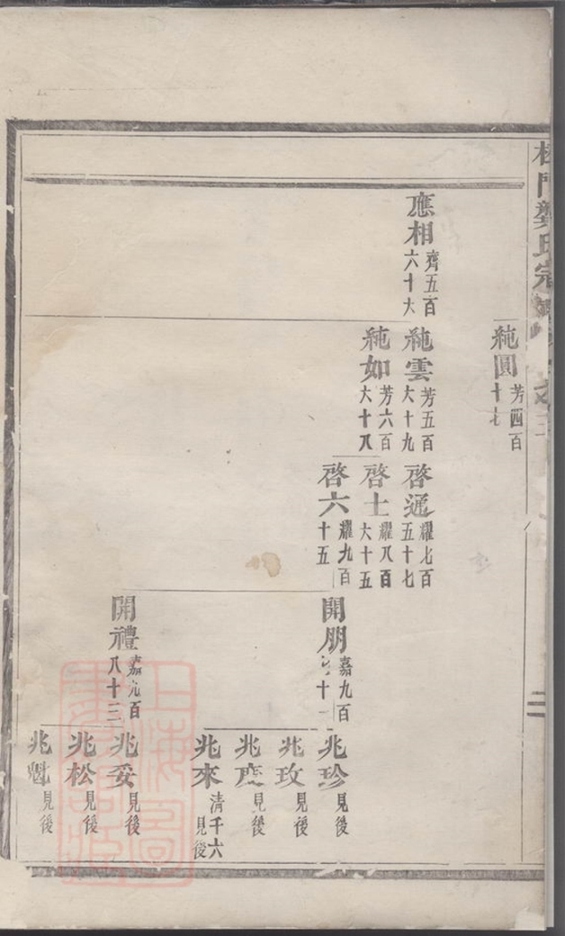 門龔氏宗
純圓 芳四百十七
應相 齊五百六十六
純雲 芳五百六十九
純如 芳六百六十八
啓通 耀七百五十七
啓士 耀八百六十五
啓六 耀九百十五
開朋 嘉九百十一
開禮 嘉九百八十三
兆珍 見後
兆玫 見後
兆 見後
兆來 清千六見後
兆妥 見後
兆松 見後
兆 見後
上海圖